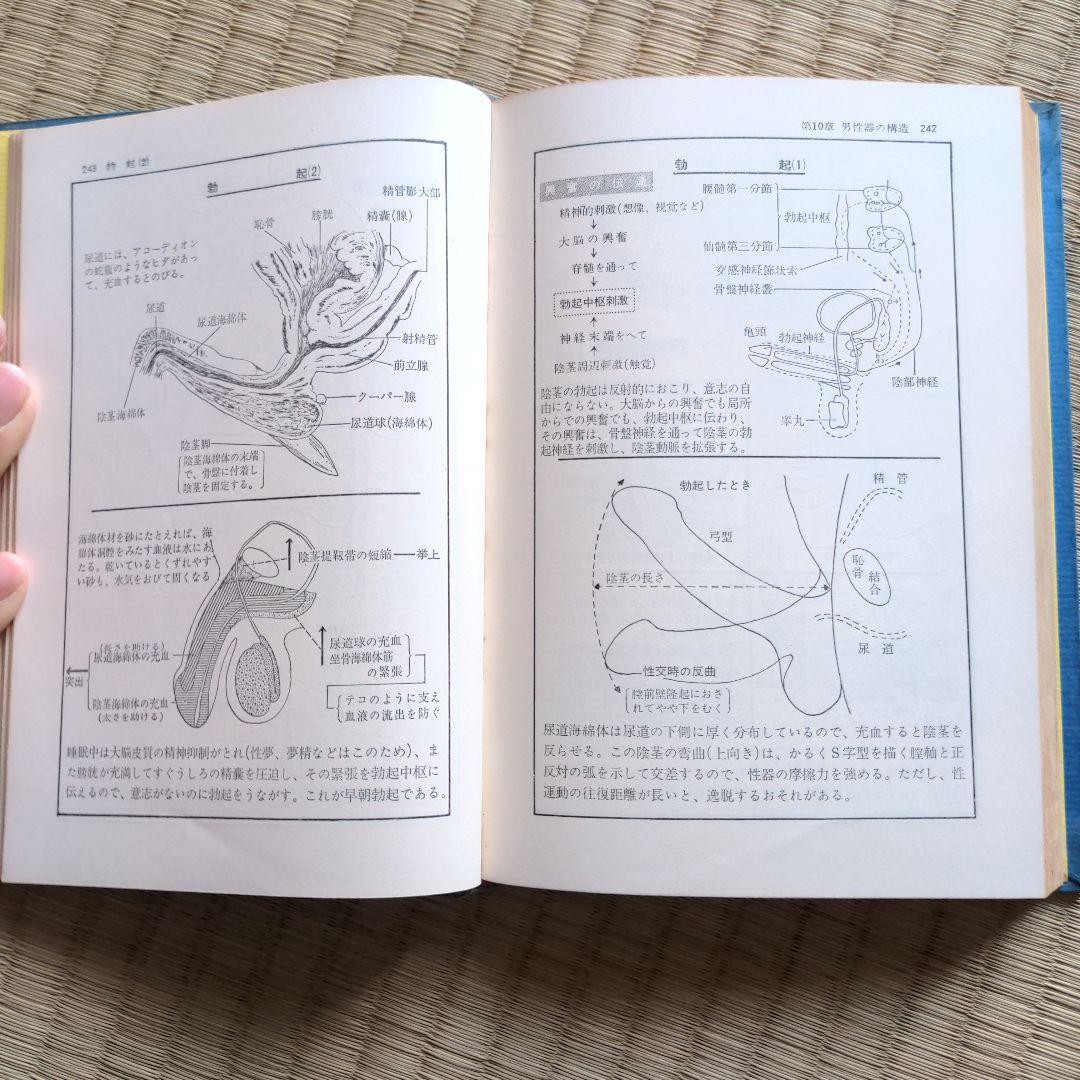 第10章 男性器の構造 242
勃起(1)
興奮の伝達
精神的刺激(想像、視覚など)
↓
大脳の興奮
↓
脊髄を通って
↓
勃起中枢刺激
↑
神経末端をへて
↑
陰茎周辺刺激(触覚)
腰髄第一分節
勃起中枢
仙髄第三分節
交感神経節状索
骨盤神経叢
亀頭
勃起神経
陰部神経
睾丸
陰茎の勃起は反射的におこり、意志の自
由にならない。大脳からの興奮でも局所
からでの興奮でも、勃起中枢に伝わり、
その興奮は、骨盤神経を通って陰茎の勃
起神経を刺激し、陰茎動脈を拡張する。
勃起したとき
精管
弓型
恥骨結合
陰茎の長さ
尿道
性交時の反曲
腟前壁隆起におさ
れてやや下をむく
尿道海綿体は尿道の下側に厚く分布しているので、充血すると陰茎を
反らせる。この陰茎の弯曲(上向き)は、かるくS字型を描く腟軸と正
反対の弧を示して交差するので、性器の摩擦力を強める。ただし、性
運動の往復距離が長いと、逸脱するおそれがある。
243 勃起(2)
勃起(2)
精管膨大部
精嚢(腺)
膀胱
恥骨
尿道には、アコーディオン
の蛇腹のようなヒダがあっ
て、充血するとのびる。
尿道
尿道海綿体
射精管
前立腺
クーパー腺
尿道球(海綿体)
陰茎海綿体
陰茎脚
陰茎海綿体の末端
で、骨盤に付着し
陰茎を固定する。
海綿体材を砂にたとえれば、海
綿体洞腔をみたす血液は水にあ
たる。乾いているとくずれやす
い砂も、水気をおびて固くなる
陰茎提靱帯の短縮——挙上
尿道球の充血
坐骨海綿体筋
の緊張
(長さを助ける)
尿道海綿体の充血
突出
陰茎海綿体の充血
(太さを助ける)
テコのように支え
血液の流出を防ぐ
睡眠中は大脳皮質の精神抑制がとれ(性夢、夢精などはこのため)、ま
た膀胱が充満してすぐうしろの精嚢を圧迫し、その緊張を勃起中枢に
伝えるので、意志がないのに勃起をうながす。これが早朝勃起である。